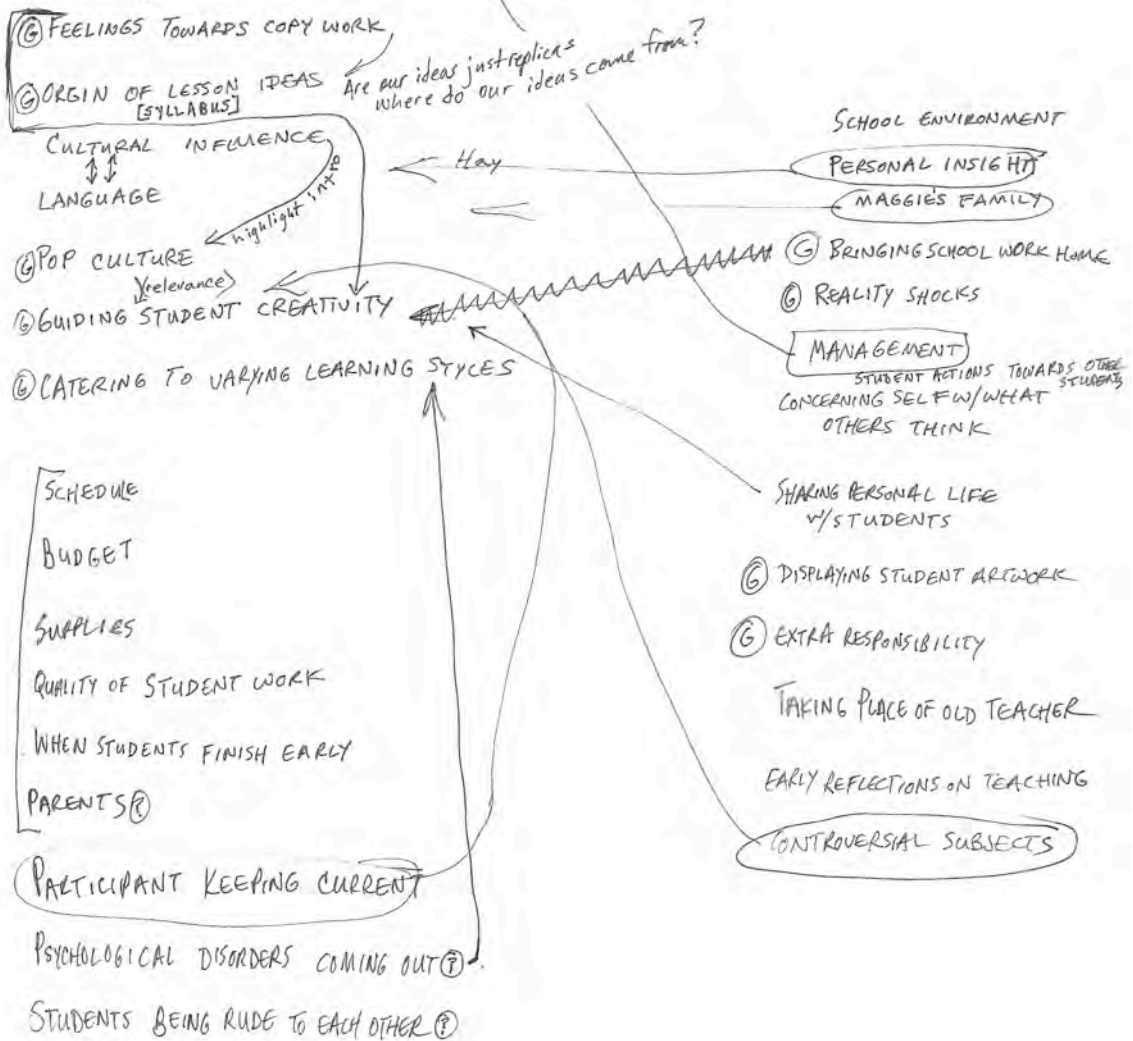 Ⓖ FEELINGS TOWARDS COPY WORK
Ⓖ ORGIN OF LESSON IDEAS
[SYLLABUS]
Are our ideas just replicas
where do our ideas come from?
CULTURAL INFLUENCE
LANGUAGE
highlight into
Ⓖ POP CULTURE
(relevance)
Ⓖ GUIDING STUDENT CREATIVITY
Ⓖ CATERING TO VARYING LEARNING STYLES
SCHEDULE
BUDGET
SUPPLIES
QUALITY OF STUDENT WORK
WHEN STUDENTS FINISH EARLY
PARENTS ?
PARTICIPANT KEEPING CURRENT
PSYCHOLOGICAL DISORDERS COMING OUT ?
STUDENTS BEING RUDE TO EACH OTHER ?
SCHOOL ENVIRONMENT
PERSONAL INSIGHT
MAGGIE'S FAMILY
Ⓖ BRINGING SCHOOL WORK HOME
Ⓖ REALITY SHOCKS
MANAGEMENT
STUDENT ACTIONS TOWARDS OTHER
STUDENTS
CONCERNING SELF W/WHAT
OTHERS THINK
SHARING PERSONAL LIFE
W/STUDENTS
Ⓖ DISPLAYING STUDENT ARTWORK
Ⓖ EXTRA RESPONSIBILITY
TAKING PLACE OF OLD TEACHER
EARLY REFLECTIONS ON TEACHING
CONTROVERSIAL SUBJECTS